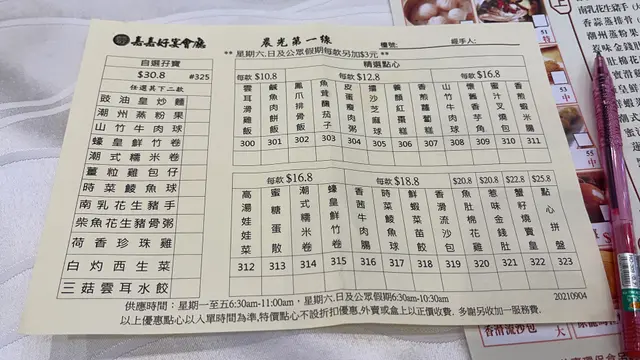 嘉嘉好宴會廳
晨光第一線
檯號:
經手人:
** 星期六.日及公眾假期每款另加$3元 **
自選孖寶
$30.8 #325
任選其下二款
豉油皇炒麵
潮州蒸粉果
山竹牛肉球
蠔皇鮮竹卷
潮式糯米卷
薑粒雞包仔
時菜鯪魚球
南乳豬手
柴魚花生豬骨粥
荷香珍珠雞
白灼西生菜
三菇雲耳水餃
精選點心
每款$10.8
每款$12.8
每款$16.8
雲耳滑雞飯 300
鹹魚肉餅飯 301
鳳爪排骨飯 302
魚茸釀茄子 303
皮蛋瘦肉粥 304
擂沙芝麻球 305
養顏紅棗糕 306
香煎蘿蔔糕 307
山竹牛肉球 308
懷舊香芋角 309
蜜汁叉燒包 310
香煎蝦米腸 311
每款$16.8
每款$18.8
$20.8
$20.8
$22.8
$25.8
高湯娃娃菜 312
蜜糖蛋散 313
潮式糯米卷 314
蠔皇鮮竹卷 315
香茜牛肉腸 316
時菜鯪魚球 317
鮮蝦菜苗餃 318
香滑流沙包 319
魚肚棉花雞 320
惹味金錢肚 321
蟹籽燒賣皇 322
點心拼盤 323
供應時間：星期一至五6:30am-11:00am，星期六.日及公眾假期6:30am-10:30am
20210904
以上優惠點心以入單時間為準,特價點心不設折扣優惠,外賣或盒上以正價收費. 多謝另收加一服務費.
51
中
53
中
香滑流沙包
大